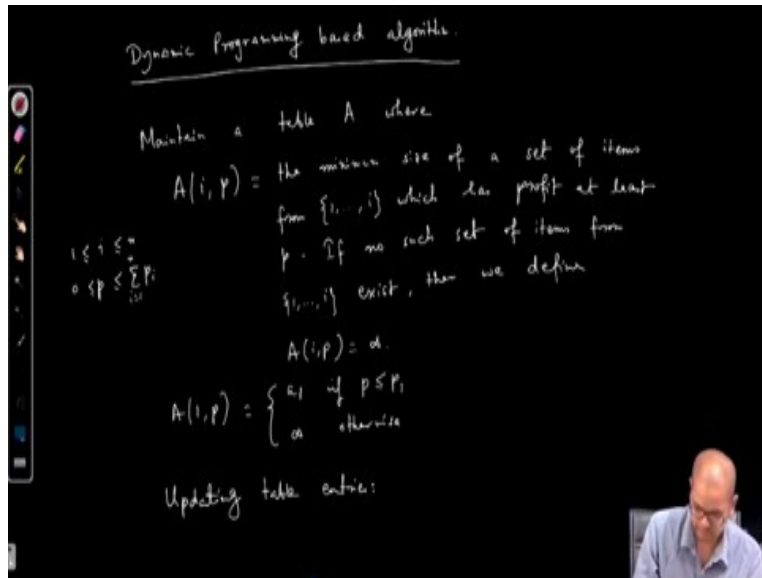 Dynamic Programming based algorithm.
Maintain a table A where
A(i, p) = the minimum size of a set of items
from {1,...,i} which has profit at least
p. If no such set of items from
{1,...,i} exist, then we define
A(i,p) = ∞.
1 ≤ i ≤ n
0 ≤ p ≤ ∑ᵢ₌₁ⁿ pᵢ
A(1,p) = { a₁ if p ≤ p₁
∞ otherwise
Updating table entries: